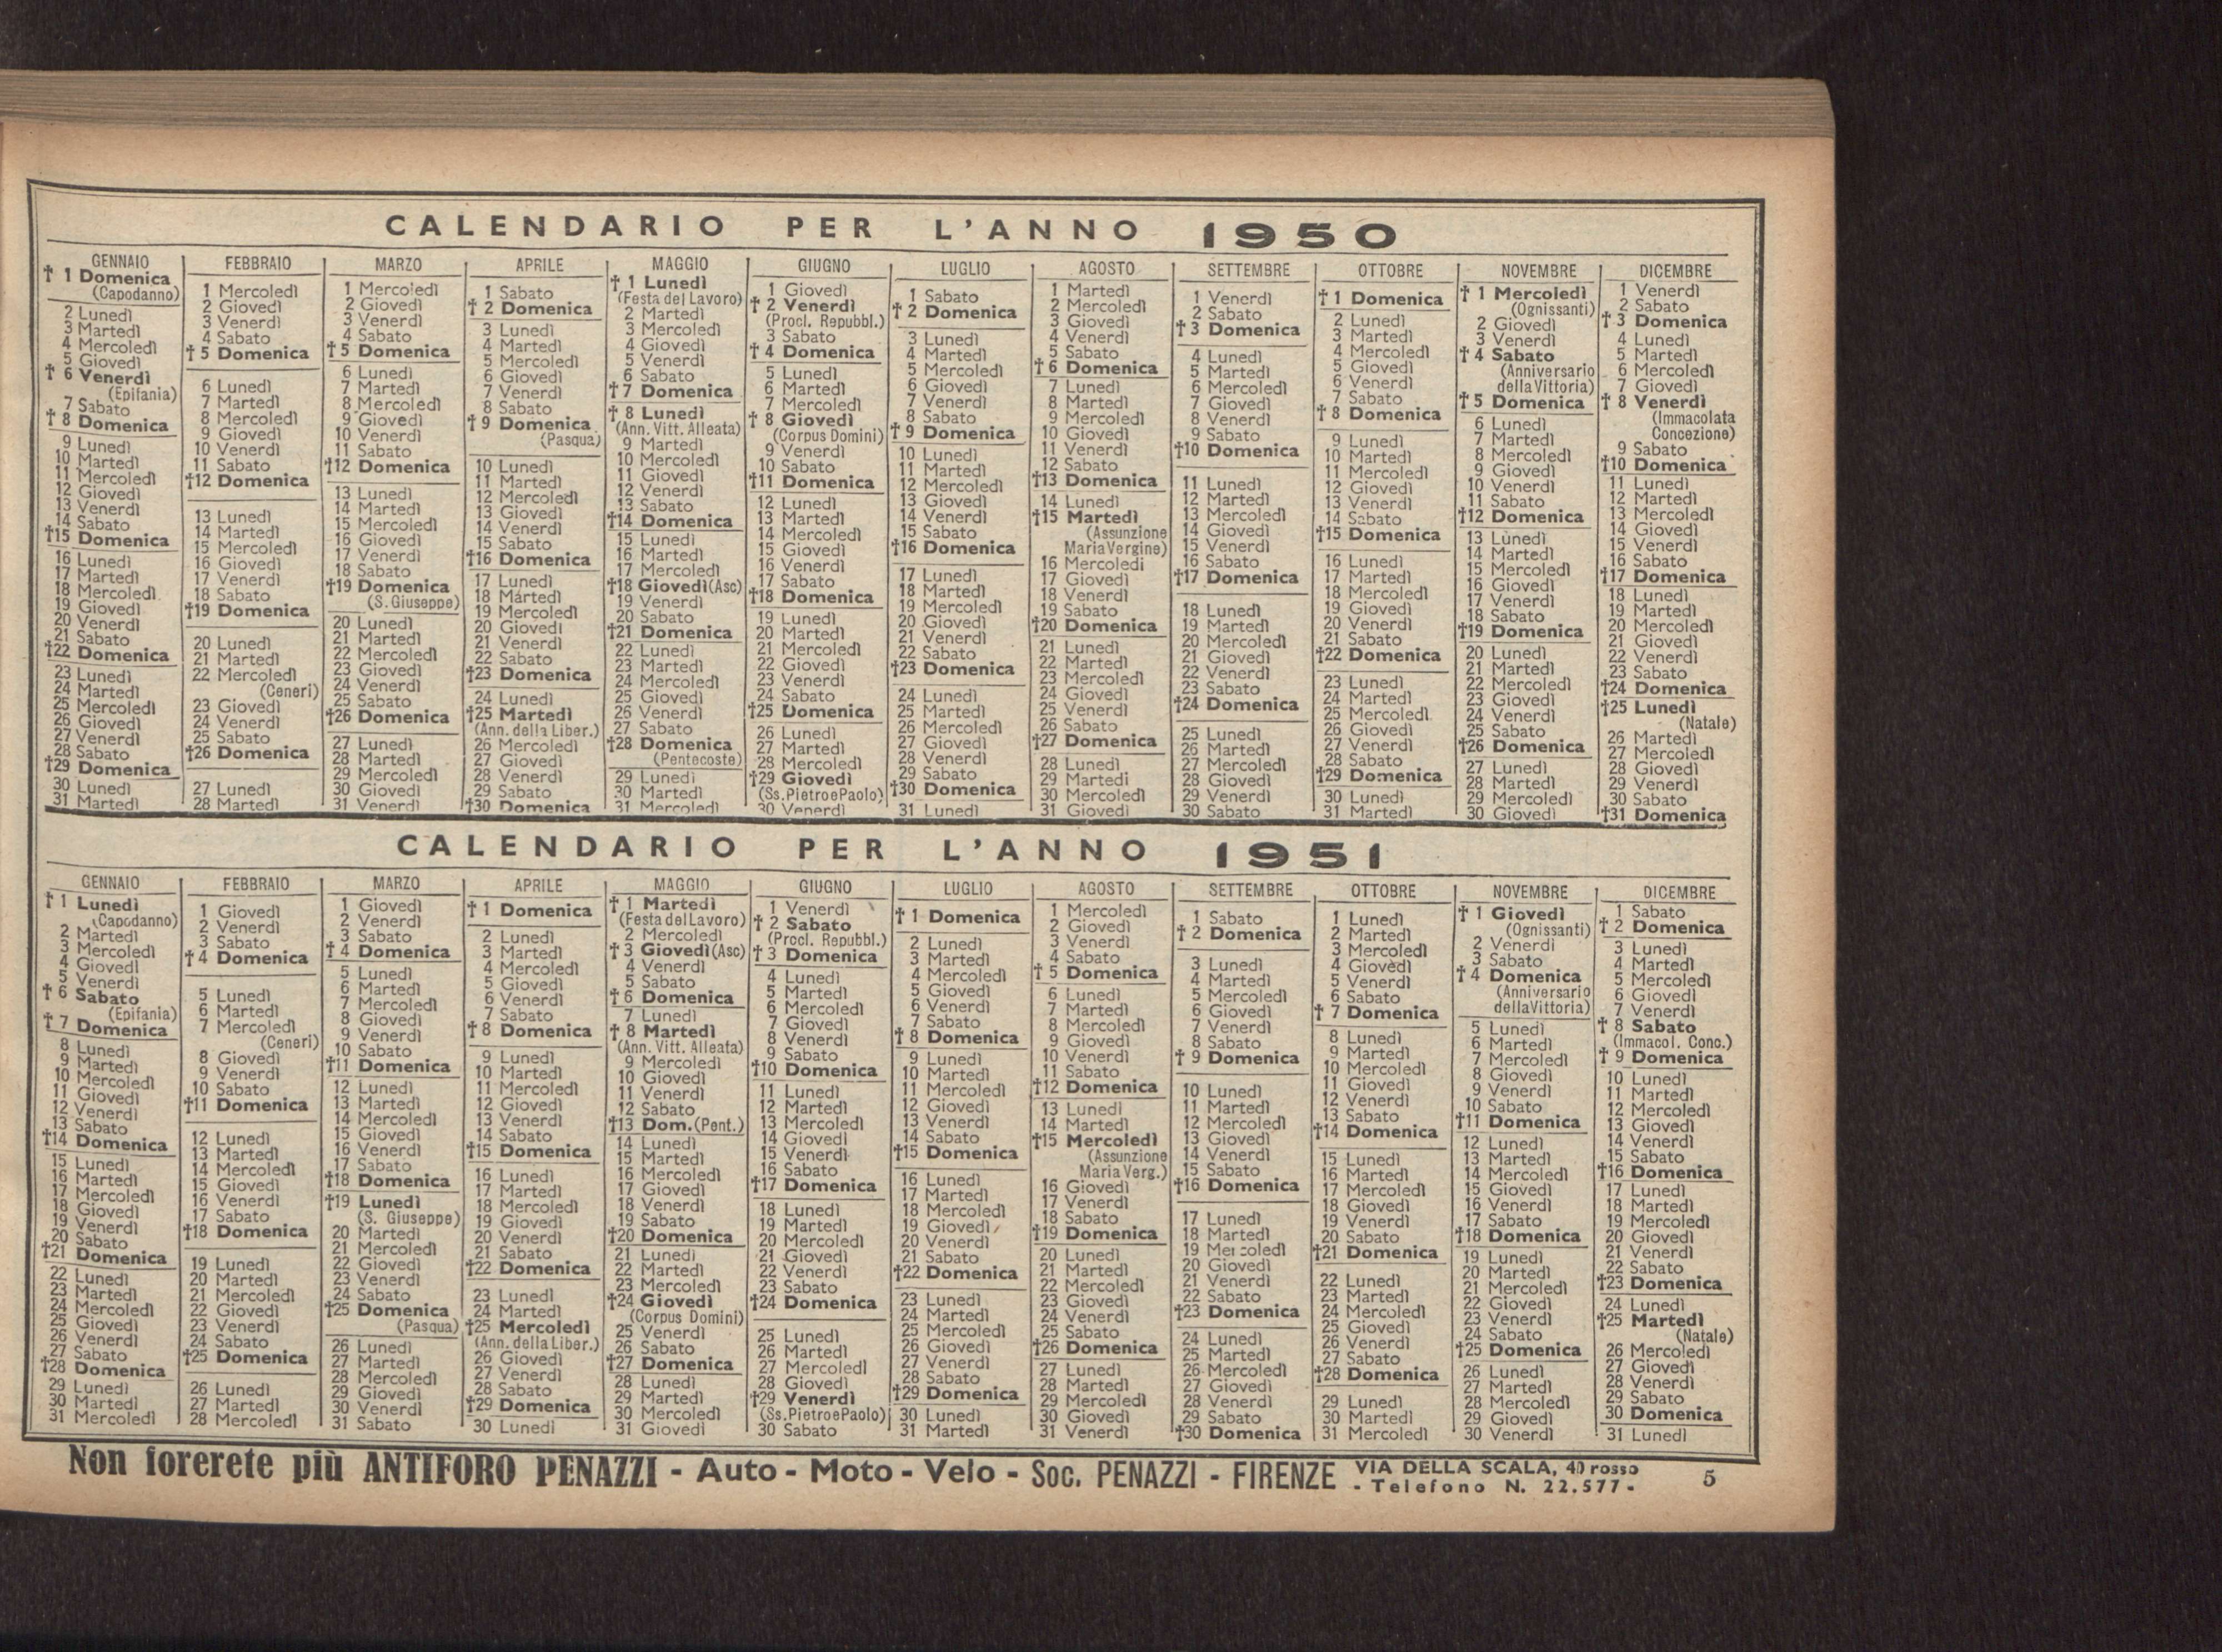 CALENDARIO PER L'ANNO 1950
GENNAIO
† 1 Domenica
(Capodanno)
2 Lunedì
3 Martedì
4 Mercoledì
5 Giovedì
† 6 Venerdì
(Epifania)
7 Sabato
† 8 Domenica
9 Lunedì
10 Martedì
11 Mercoledì
12 Giovedì
13 Venerdì
14 Sabato
†15 Domenica
16 Lunedì
17 Martedì
18 Mercoledì
19 Giovedì
20 Venerdì
21 Sabato
†22 Domenica
23 Lunedì
24 Martedì
25 Mercoledì
26 Giovedì
27 Venerdì
28 Sabato
†29 Domenica
30 Lunedì
31 Martedì
FEBBRAIO
1 Mercoledì
2 Giovedì
3 Venerdì
4 Sabato
† 5 Domenica
6 Lunedì
7 Martedì
8 Mercoledì
9 Giovedì
10 Venerdì
11 Sabato
†12 Domenica
13 Lunedì
14 Martedì
15 Mercoledì
16 Giovedì
17 Venerdì
18 Sabato
†19 Domenica
20 Lunedì
21 Martedì
22 Mercoledì
(Ceneri)
23 Giovedì
24 Venerdì
25 Sabato
†26 Domenica
27 Lunedì
28 Martedì
MARZO
1 Mercoledì
2 Giovedì
3 Venerdì
4 Sabato
† 5 Domenica
6 Lunedì
7 Martedì
8 Mercoledì
9 Giovedì
10 Venerdì
11 Sabato
†12 Domenica
13 Lunedì
14 Martedì
15 Mercoledì
16 Giovedì
17 Venerdì
18 Sabato
†19 Domenica
(S. Giuseppe)
20 Lunedì
21 Martedì
22 Mercoledì
23 Giovedì
24 Venerdì
25 Sabato
†26 Domenica
27 Lunedì
28 Martedì
29 Mercoledì
30 Giovedì
31 Venerdì
APRILE
1 Sabato
† 2 Domenica
3 Lunedì
4 Martedì
5 Mercoledì
6 Giovedì
7 Venerdì
8 Sabato
† 9 Domenica
(Pasqua)
10 Lunedì
11 Martedì
12 Mercoledì
13 Giovedì
14 Venerdì
15 Sabato
†16 Domenica
17 Lunedì
18 Martedì
19 Mercoledì
20 Giovedì
21 Venerdì
22 Sabato
†23 Domenica
24 Lunedì
†25 Martedì
(Ann. della Liber.)
26 Mercoledì
27 Giovedì
28 Venerdì
29 Sabato
†30 Domenica
MAGGIO
† 1 Lunedì
(Festa del Lavoro)
2 Martedì
3 Mercoledì
4 Giovedì
5 Venerdì
6 Sabato
† 7 Domenica
† 8 Lunedì
(Ann. Vitt. Alleata)
9 Martedì
10 Mercoledì
11 Giovedì
12 Venerdì
13 Sabato
†14 Domenica
15 Lunedì
16 Martedì
17 Mercoledì
†18 Giovedì (Asc)
19 Venerdì
20 Sabato
†21 Domenica
22 Lunedì
23 Martedì
24 Mercoledì
25 Giovedì
26 Venerdì
27 Sabato
†28 Domenica
(Pentecoste)
29 Lunedì
30 Martedì
31 Mercoledì
GIUGNO
1 Giovedì
† 2 Venerdì
(Procl. Repubbl.)
3 Sabato
† 4 Domenica
5 Lunedì
6 Martedì
7 Mercoledì
† 8 Giovedì
(Corpus Domini)
9 Venerdì
10 Sabato
†11 Domenica
12 Lunedì
13 Martedì
14 Mercoledì
15 Giovedì
16 Venerdì
17 Sabato
†18 Domenica
19 Lunedì
20 Martedì
21 Mercoledì
22 Giovedì
23 Venerdì
24 Sabato
†25 Domenica
26 Lunedì
27 Martedì
28 Mercoledì
†29 Giovedì
(Ss. Pietro e Paolo)
30 Venerdì
LUGLIO
1 Sabato
† 2 Domenica
3 Lunedì
4 Martedì
5 Mercoledì
6 Giovedì
7 Venerdì
8 Sabato
† 9 Domenica
10 Lunedì
11 Martedì
12 Mercoledì
13 Giovedì
14 Venerdì
15 Sabato
†16 Domenica
17 Lunedì
18 Martedì
19 Mercoledì
20 Giovedì
21 Venerdì
22 Sabato
†23 Domenica
24 Lunedì
25 Martedì
26 Mercoledì
27 Giovedì
28 Venerdì
29 Sabato
†30 Domenica
31 Lunedì
AGOSTO
1 Martedì
2 Mercoledì
3 Giovedì
4 Venerdì
5 Sabato
† 6 Domenica
7 Lunedì
8 Martedì
9 Mercoledì
10 Giovedì
11 Venerdì
12 Sabato
†13 Domenica
14 Lunedì
†15 Martedì
(Assunzione
Maria Vergine)
16 Mercoledì
17 Giovedì
18 Venerdì
19 Sabato
†20 Domenica
21 Lunedì
22 Martedì
23 Mercoledì
24 Giovedì
25 Venerdì
26 Sabato
†27 Domenica
28 Lunedì
29 Martedì
30 Mercoledì
31 Giovedì
SETTEMBRE
1 Venerdì
2 Sabato
† 3 Domenica
4 Lunedì
5 Martedì
6 Mercoledì
7 Giovedì
8 Venerdì
9 Sabato
†10 Domenica
11 Lunedì
12 Martedì
13 Mercoledì
14 Giovedì
15 Venerdì
16 Sabato
†17 Domenica
18 Lunedì
19 Martedì
20 Mercoledì
21 Giovedì
22 Venerdì
23 Sabato
†24 Domenica
25 Lunedì
26 Martedì
27 Mercoledì
28 Giovedì
29 Venerdì
30 Sabato
OTTOBRE
† 1 Domenica
2 Lunedì
3 Martedì
4 Mercoledì
5 Giovedì
6 Venerdì
7 Sabato
† 8 Domenica
9 Lunedì
10 Martedì
11 Mercoledì
12 Giovedì
13 Venerdì
14 Sabato
†15 Domenica
16 Lunedì
17 Martedì
18 Mercoledì
19 Giovedì
20 Venerdì
21 Sabato
†22 Domenica
23 Lunedì
24 Martedì
25 Mercoledì
26 Giovedì
27 Venerdì
28 Sabato
†29 Domenica
30 Lunedì
31 Martedì
NOVEMBRE
† 1 Mercoledì
(Ognissanti)
2 Giovedì
3 Venerdì
† 4 Sabato
(Anniversario
della Vittoria)
† 5 Domenica
6 Lunedì
7 Martedì
8 Mercoledì
9 Giovedì
10 Venerdì
11 Sabato
†12 Domenica
13 Lùnedì
14 Martedì
15 Mercoledì
16 Giovedì
17 Venerdì
18 Sabato
†19 Domenica
20 Lunedì
21 Martedì
22 Mercoledì
23 Giovedì
24 Venerdì
25 Sabato
†26 Domenica
27 Lunedì
28 Martedì
29 Mercoledì
30 Giovedì
DICEMBRE
1 Venerdì
2 Sabato
† 3 Domenica
4 Lunedì
5 Martedì
6 Mercoledì
7 Giovedì
† 8 Venerdì
(Immacolata
Concezione)
9 Sabato
†10 Domenica
11 Lunedì
12 Martedì
13 Mercoledì
14 Giovedì
15 Venerdì
16 Sabato
†17 Domenica
18 Lunedì
19 Martedì
20 Mercoledì
21 Giovedì
22 Venerdì
23 Sabato
†24 Domenica
†25 Lunedì
(Natale)
26 Martedì
27 Mercoledì
28 Giovedì
29 Venerdì
30 Sabato
†31 Domenica
CALENDARIO PER L'ANNO 1951
GENNAIO
† 1 Lunedì
(Capodanno)
2 Martedì
3 Mercoledì
4 Giovedì
5 Venerdì
† 6 Sabato
(Epifania)
† 7 Domenica
8 Lunedì
9 Martedì
10 Mercoledì
11 Giovedì
12 Venerdì
13 Sabato
†14 Domenica
15 Lunedì
16 Martedì
17 Mercoledì
18 Giovedì
19 Venerdì
20 Sabato
†21 Domenica
22 Lunedì
23 Martedì
24 Mercoledì
25 Giovedì
26 Venerdì
27 Sabato
†28 Domenica
29 Lunedì
30 Martedì
31 Mercoledì
FEBBRAIO
1 Giovedì
2 Venerdì
3 Sabato
† 4 Domenica
5 Lunedì
6 Martedì
7 Mercoledì
(Ceneri)
8 Giovedì
9 Venerdì
10 Sabato
†11 Domenica
12 Lunedì
13 Martedì
14 Mercoledì
15 Giovedì
16 Venerdì
17 Sabato
†18 Domenica
19 Lunedì
20 Martedì
21 Mercoledì
22 Giovedì
23 Venerdì
24 Sabato
†25 Domenica
26 Lunedì
27 Martedì
28 Mercoledì
MARZO
1 Giovedì
2 Venerdì
3 Sabato
† 4 Domenica
5 Lunedì
6 Martedì
7 Mercoledì
8 Giovedì
9 Venerdì
10 Sabato
†11 Domenica
12 Lunedì
13 Martedì
14 Mercoledì
15 Giovedì
16 Venerdì
17 Sabato
†18 Domenica
†19 Lunedì
(S. Giuseppe)
20 Martedì
21 Mercoledì
22 Giovedì
23 Venerdì
24 Sabato
†25 Domenica
(Pasqua)
26 Lunedì
27 Martedì
28 Mercoledì
29 Giovedì
30 Venerdì
31 Sabato
APRILE
† 1 Domenica
2 Lunedì
3 Martedì
4 Mercoledì
5 Giovedì
6 Venerdì
7 Sabato
† 8 Domenica
9 Lunedì
10 Martedì
11 Mercoledì
12 Giovedì
13 Venerdì
14 Sabato
†15 Domenica
16 Lunedì
17 Martedì
18 Mercoledì
19 Giovedì
20 Venerdì
21 Sabato
†22 Domenica
23 Lunedì
24 Martedì
†25 Mercoledì
(Ann. della Liber.)
26 Giovedì
27 Venerdì
28 Sabato
†29 Domenica
30 Lunedì
MAGGIO
† 1 Martedì
(Festa del Lavoro)
2 Mercoledì
† 3 Giovedì (Asc)
4 Venerdì
5 Sabato
† 6 Domenica
7 Lunedì
† 8 Martedì
(Ann. Vitt. Alleata)
9 Mercoledì
10 Giovedì
11 Venerdì
12 Sabato
†13 Dom. (Pent.)
14 Lunedì
15 Martedì
16 Mercoledì
17 Giovedì
18 Venerdì
19 Sabato
†20 Domenica
21 Lunedì
22 Martedì
23 Mercoledì
†24 Giovedì
(Corpus Domini)
25 Venerdì
26 Sabato
†27 Domenica
28 Lunedì
29 Martedì
30 Mercoledì
31 Giovedì
GIUGNO
1 Venerdì
† 2 Sabato
(Procl. Repubbl.)
† 3 Domenica
4 Lunedì
5 Martedì
6 Mercoledì
7 Giovedì
8 Venerdì
9 Sabato
†10 Domenica
11 Lunedì
12 Martedì
13 Mercoledì
14 Giovedì
15 Venerdì
16 Sabato
†17 Domenica
18 Lunedì
19 Martedì
20 Mercoledì
21 Giovedì
22 Venerdì
23 Sabato
†24 Domenica
25 Lunedì
26 Martedì
27 Mercoledì
28 Giovedì
†29 Venerdì
(Ss. Pietro e Paolo)
30 Sabato
LUGLIO
† 1 Domenica
2 Lunedì
3 Martedì
4 Mercoledì
5 Giovedì
6 Venerdì
7 Sabato
† 8 Domenica
9 Lunedì
10 Martedì
11 Mercoledì
12 Giovedì
13 Venerdì
14 Sabato
†15 Domenica
16 Lunedì
17 Martedì
18 Mercoledì
19 Giovedì
20 Venerdì
21 Sabato
†22 Domenica
23 Lunedì
24 Martedì
25 Mercoledì
26 Giovedì
27 Venerdì
28 Sabato
†29 Domenica
30 Lunedì
31 Martedì
AGOSTO
1 Mercoledì
2 Giovedì
3 Venerdì
4 Sabato
† 5 Domenica
6 Lunedì
7 Martedì
8 Mercoledì
9 Giovedì
10 Venerdì
11 Sabato
†12 Domenica
13 Lunedì
14 Martedì
†15 Mercoledì
(Assunzione
Maria Verg.)
16 Giovedì
17 Venerdì
18 Sabato
†19 Domenica
20 Lunedì
21 Martedì
22 Mercoledì
23 Giovedì
24 Venerdì
25 Sabato
†26 Domenica
27 Lunedì
28 Martedì
29 Mercoledì
30 Giovedì
31 Venerdì
SETTEMBRE
1 Sabato
† 2 Domenica
3 Lunedì
4 Martedì
5 Mercoledì
6 Giovedì
7 Venerdì
8 Sabato
† 9 Domenica
10 Lunedì
11 Martedì
12 Mercoledì
13 Giovedì
14 Venerdì
15 Sabato
†16 Domenica
17 Lunedì
18 Martedì
19 Mercoledì
20 Giovedì
21 Venerdì
22 Sabato
†23 Domenica
24 Lunedì
25 Martedì
26 Mercoledì
27 Giovedì
28 Venerdì
29 Sabato
†30 Domenica
OTTOBRE
1 Lunedì
2 Martedì
3 Mercoledì
4 Giovedì
5 Venerdì
6 Sabato
† 7 Domenica
8 Lunedì
9 Martedì
10 Mercoledì
11 Giovedì
12 Venerdì
13 Sabato
†14 Domenica
15 Lunedì
16 Martedì
17 Mercoledì
18 Giovedì
19 Venerdì
20 Sabato
†21 Domenica
22 Lunedì
23 Martedì
24 Mercoledì
25 Giovedì
26 Venerdì
27 Sabato
†28 Domenica
29 Lunedì
30 Martedì
31 Mercoledì
NOVEMBRE
† 1 Giovedì
(Ognissanti)
2 Venerdì
3 Sabato
† 4 Domenica
(Anniversario
della Vittoria)
5 Lunedì
6 Martedì
7 Mercoledì
8 Giovedì
9 Venerdì
10 Sabato
†11 Domenica
12 Lunedì
13 Martedì
14 Mercoledì
15 Giovedì
16 Venerdì
17 Sabato
†18 Domenica
19 Lunedì
20 Martedì
21 Mercoledì
22 Giovedì
23 Venerdì
24 Sabato
†25 Domenica
26 Lunedì
27 Martedì
28 Mercoledì
29 Giovedì
30 Venerdì
DICEMBRE
1 Sabato
† 2 Domenica
3 Lunedì
4 Martedì
5 Mercoledì
6 Giovedì
7 Venerdì
† 8 Sabato
(Immacol. Conc.)
† 9 Domenica
10 Lunedì
11 Martedì
12 Mercoledì
13 Giovedì
14 Venerdì
15 Sabato
†16 Domenica
17 Lunedì
18 Martedì
19 Mercoledì
20 Giovedì
21 Venerdì
22 Sabato
†23 Domenica
24 Lunedì
†25 Martedì
(Natale)
26 Mercoledì
27 Giovedì
28 Venerdì
29 Sabato
30 Domenica
31 Lunedì
Non forerete più ANTIFORO PENAZZI - Auto - Moto - Velo - Soc. PENAZZI - FIRENZE
VIA DELLA SCALA, 40 rosso
- Telefono N. 22.577 -
5